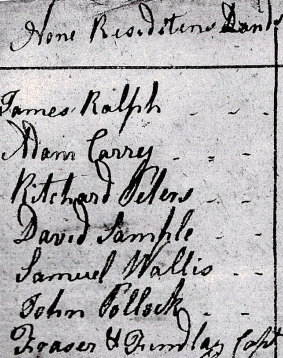 None Residetens Lands
James Ralph
Adam Carrey
Ritchard Peters
David Sample
Samuel Wallis
John Pollock
Fraser & Fundlay Capt